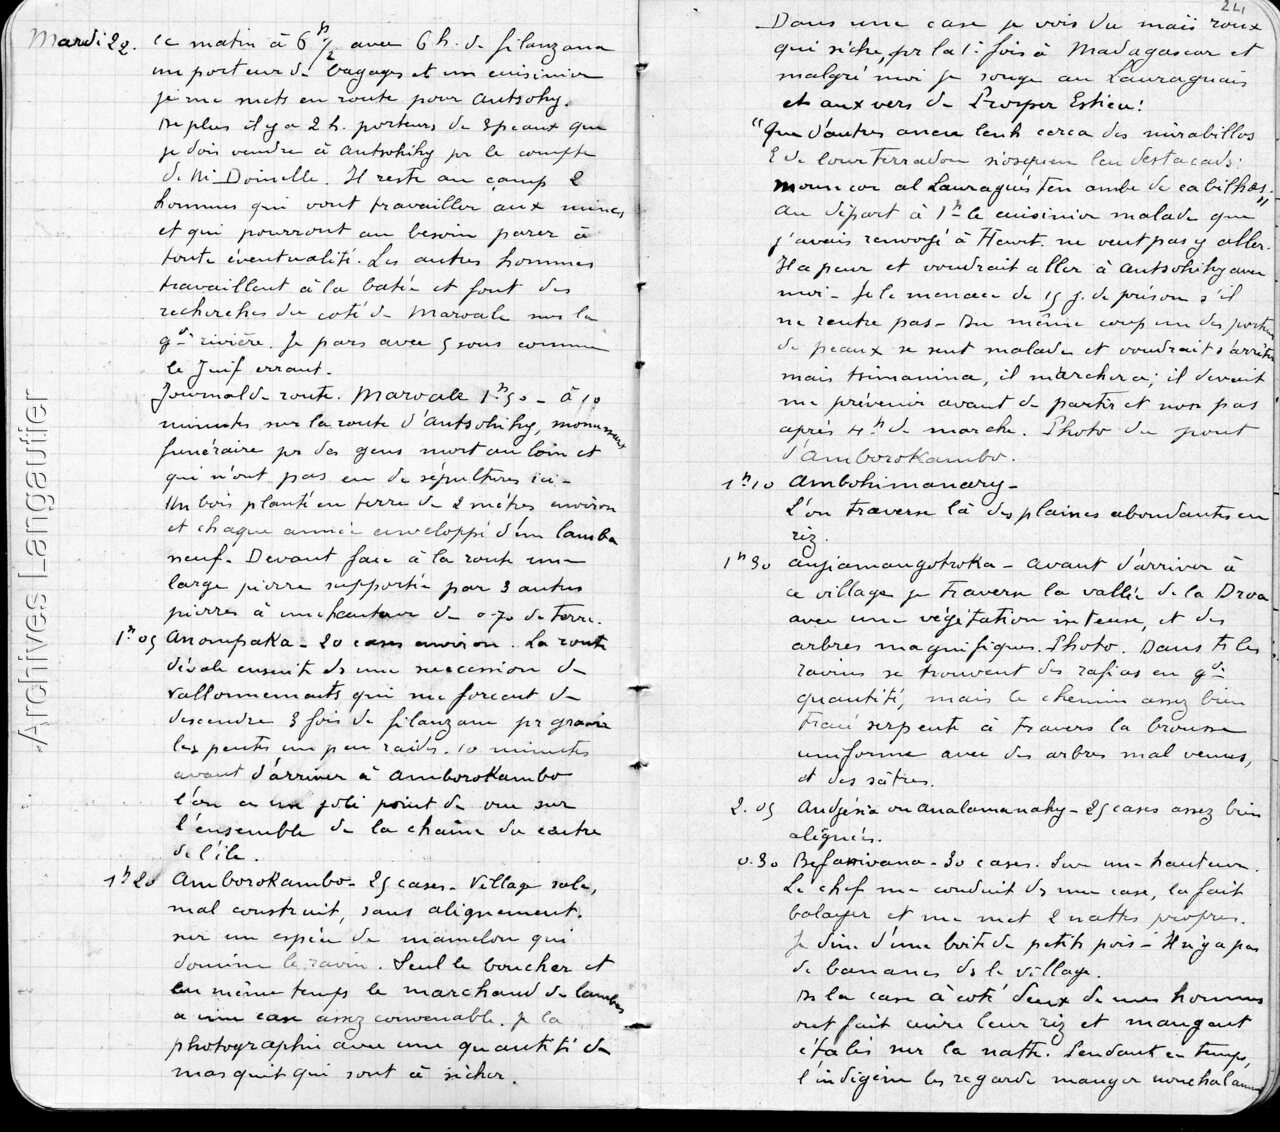 Mardi 22. Ce matin à 6h ½ avec 6 h. de filanzana
un porteur de bagages et un cuisinier
je me mets en route pour Antsohy.
De plus il y a 2 h. porteurs de 3 peaux que
je dois vendre à Antsohihy pr le compte
de Mr Doinelle. Il reste au camp 2
hommes qui vont travailler aux mines
et qui pourront au besoin parer à
toute éventualité. Les autres hommes
travaillent à la batée et font des
recherches du coté de Maroale sur la
gde rivière. Je pars avec 5 sous comme
le Juif errant.
Journal de route. Maroale 1h 50 - à 10
minutes sur la route d'Antsohihy, monument
funéraire pr des gens mort au loin et
qui n'ont pas eu de sépultures ici -
Un bois planté en terre de 2 mètres environ
et chaque année enveloppé d'un lamba
neuf. Devant face à la route une
large pierre supportée par 3 autres
pierres à une hauteur de 0.70 de terre.
1h 05 Anompaka - 20 cases environ. La route
dévale ensuite ds une succession de
vallonnements qui me forcent de
descendre 3 fois de filanzane pr gravir
les pentes un peu raides. 10 minutes
avant d'arriver à Amborokambo
l'on a un joli point de vue sur
l'ensemble de la chaîne du centre
de l'île.
1h 20 Amborokambo - 25 cases - Village sale,
mal construit, sans alignement.
sur un espèce de mamelon qui
domine le ravin. Seul le boucher et
en même temps le marchand de lambas
a une case assez convenable. Je la
photographie avec une quantité de
mas quit qui sont à sécher.
24
Dans une case je vois du maïs roux
qui sèche, pr la 1e fois à Madagascar et
malgré moi je songe au Lauraguais
et aux vers de Prosper Estieu!
"Que d'autres anen lenh cerca des mirabillos
E de lour terradou s'osepien leu destacads.
Moun cor al Lauragués ten ambe de cabilhos."
Au départ à 1h le cuisinier malade que
j'avais renvoyé à ne veut pas y aller.
Il a peur et voudrait aller à Antsohihy avec
moi - Je le menace de 15 j. de prison s'il
ne rentre pas - Du même coup un des porteurs
de peaux se sent malade et voudrait s'arrêter
mais tsimanina, il marchera; il devait
me prévenir avant de partir et non pas
après 4h de marche. Photo du pont
d'Amborokambo.
1h 10 Ambohimanary -
L'on traverse là des plaines abondantes en
riz.
1h 30 Anjiamangotroka - Avant d'arriver à
ce village je traverse la vallée de la Droa
avec une végétation intense, et des
arbres magnifiques. Photo. Dans ts les
ravins se trouvent des rafias en gde
quantité, mais le chemin assez bien
tracé serpente à travers la brousse
uniforme avec des arbres mal venus,
et des sâtres.
2.05 Andjésia ou Analamanahy - 25 cases assez bien
alignées.
0.30 Befarivana - 30 cases. Sur une hauteur.
Le chef me conduit ds une case, la fait
balayer et me met 2 nattes propres.
Je dîne d'une boîte de petits pois - Il n'y a pas
de bananes ds le village.
Ds la case à coté deux de mes hommes
ont fait cuire leur riz et mangent
étalés sur la natte. Pendant ce temps,
l'indigène les regarde manger nonchalamment
Archives Langautier